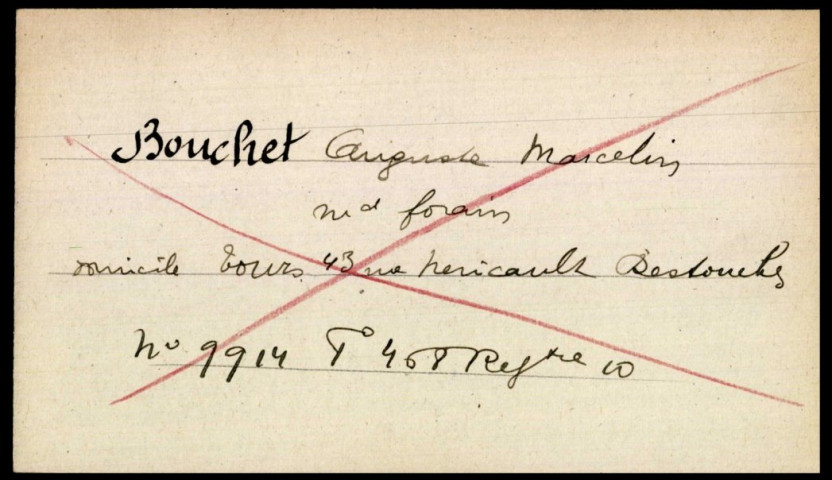 Bouchet Auguste Marcelin
md forain
domicile Tours 43 rue Nericault Destouches
No 9914 Fo 468 Regtre 10